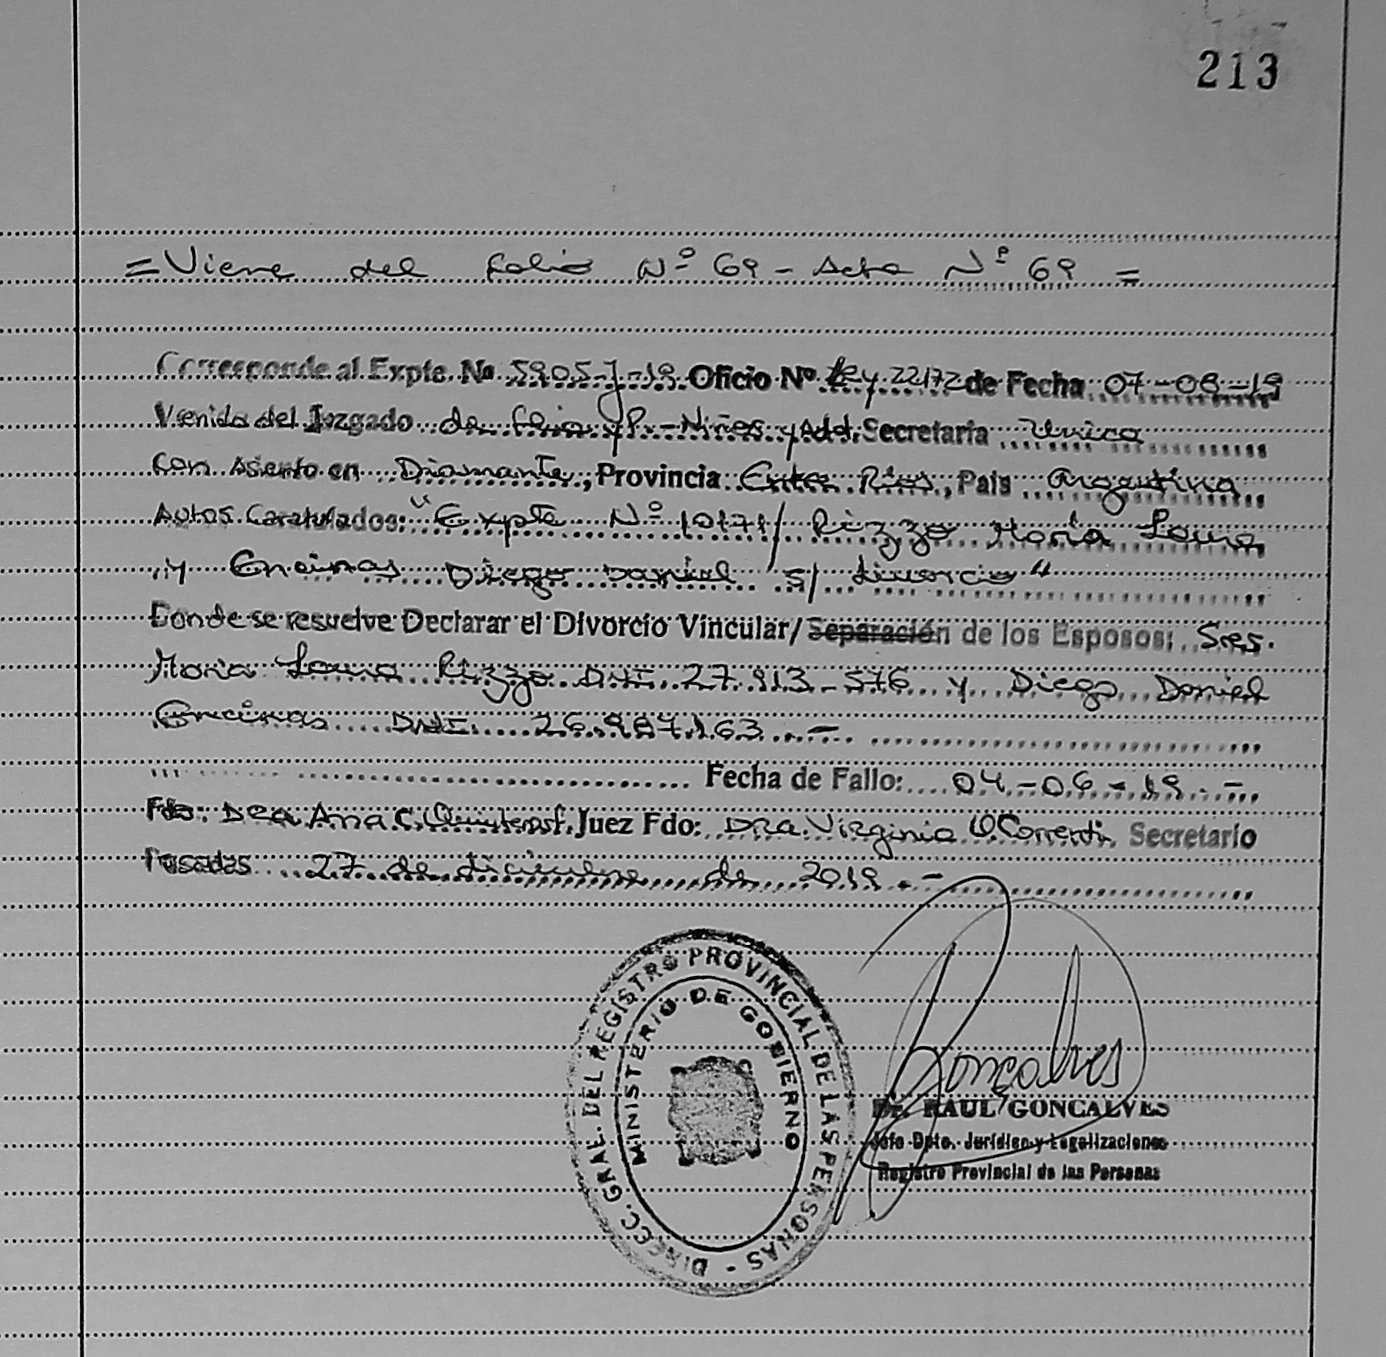 213
= Viene del folio Nº 69 - Acta Nº 69 =
Corresponde al Expte. Nº 5905-J-19 Oficio Nº Ley 22172 de Fecha 07-08-19
Venido del Juzgado de Flia y P.- Niñez y Add. Secretaria Unica
Con Asiento en Diamante, Provincia Entre Rios, Pais Argentina
Autos Caratulados: "Expte Nº 10171/ Rizzo Maria Laura
y Encinas Diego Daniel s/ divorcio"
Donde se resuelve Declarar el Divorcio Vincular/ Separación de los Esposos: Sres.
Maria Laura Rizzo DNI 27.913-576 y Diego Daniel
Encinas DNI. 26.987.163.-
Fecha de Fallo: 04-06-19.-
Fdo: Dra Ana C. Juez Fdo: Dra. Virginia O. Correnti. Secretario
Posadas 27 de diciembre de 2019.-
DIRECC. GRAL. DEL REGISTRO PROVINCIAL DE LAS PERSONAS -
MINISTERIO DE GOBIERNO
Gonçalves
Dr. RAUL GONCALVES
Jefe Dpto. Jurídico y Legalizaciones
Registro Provincial de las Personas